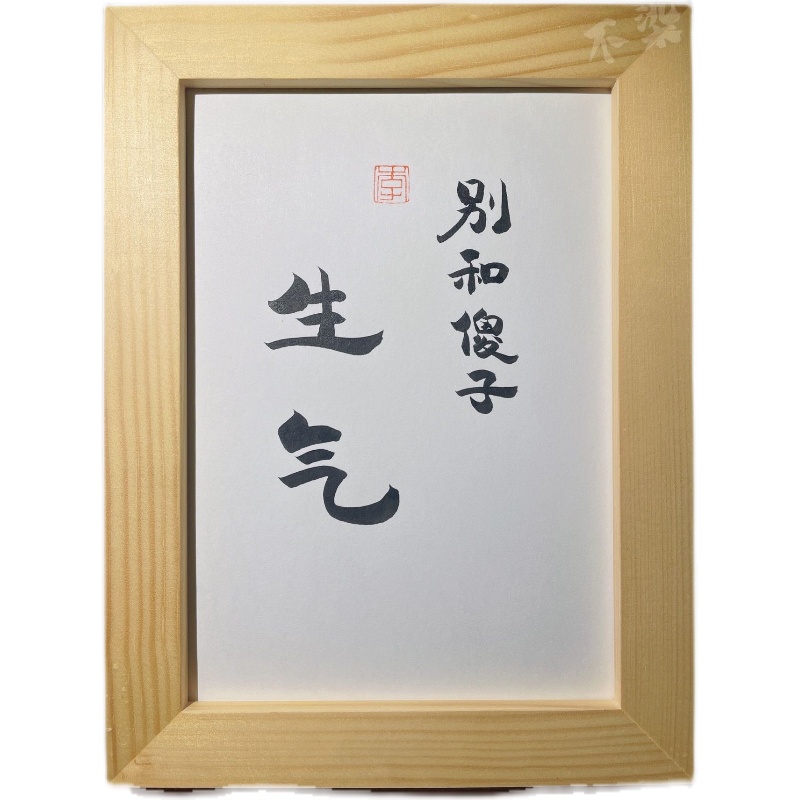 别和傻子
生气
李
不染